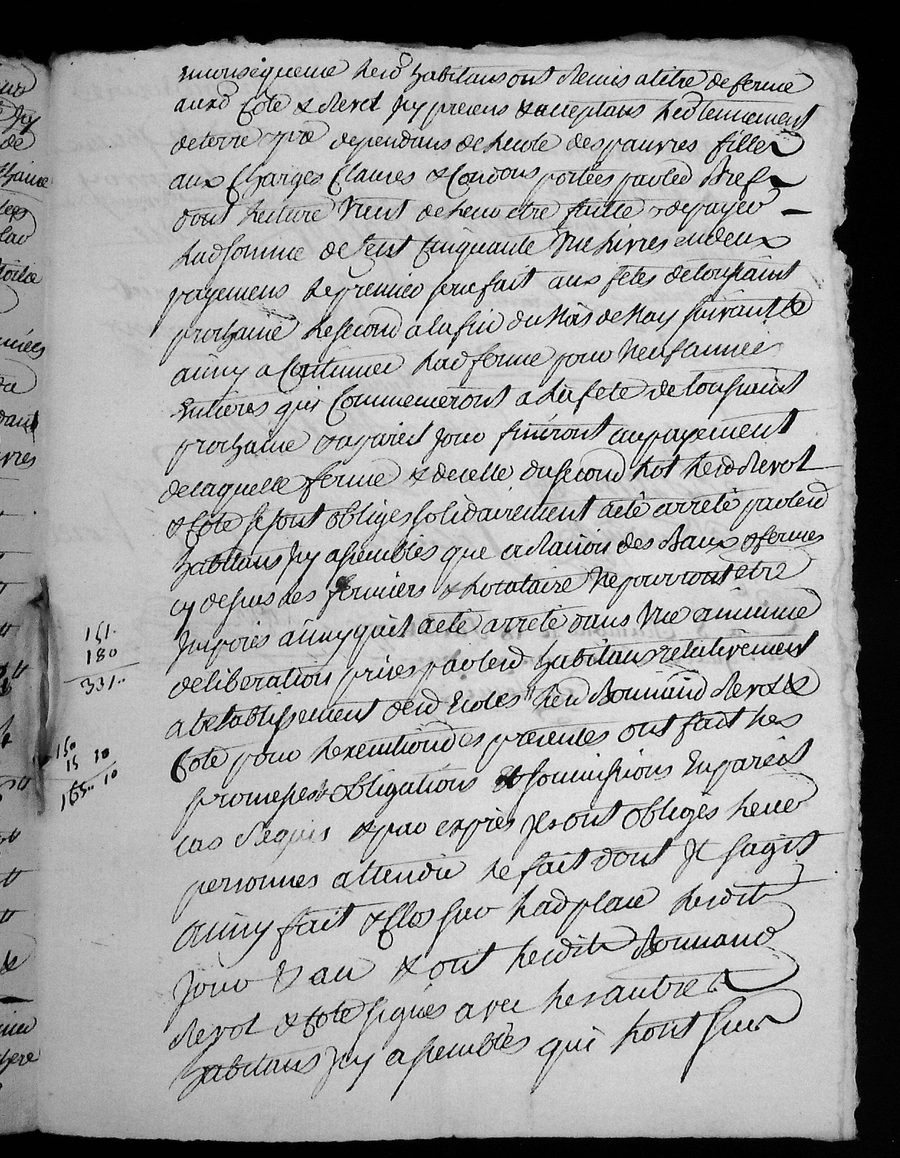 Enconsequence lesd habitans ont Remis atitre de ferme
auxd Cote & Revol Jcy presens & acceptans lesd tennement
de terre & pré dependans de lecole des pauvres filles
aux Charges Clauses & Condons portées par led Bref
dont lecture Vient de leur etre faitte & de payer
Lad somme de Cent Cinquante Une Livres en deux
payemens le premier sera fait aux fêtes de toussaint
prochaine le second a la fin du Mois de May suivant &
ainsy a Continuer Lad ferme pour Neuf années
Entieres qui Commenceront a La fete de toussaint
prochaine & apareil Jour finiront au payement
de laquelle ferme & de celle du second Lot lesd Revol
& Cote se sont obliges solidairement a eté arreté par lesd
habitans Jcy assemblés que a Raison des Baux & fermes
cy dessus les fermiers & Locataire Ne pourront etre
Imposés ainsy quil a eté arreté dans Une
deliberation prise par lesd habitans relativement
a letablissement desd Ecoles Lesd Bonnand Revol &
Cote pour lexecution des presentes ont fait les
promesses obligations & soumissions En pareil
Cas Requis & par exprès se sont obligés Leur
personnes attendu le fait dont Jl sagit
Ainsy fait & Clos sur Lad place lesdit
Jour & an & ont lesdits Bonnand
Revol & Cote signés avec les autres
habitans Jcy assemblés qui Lont sçu
151.
180
331..
150
15 10
165.. 10